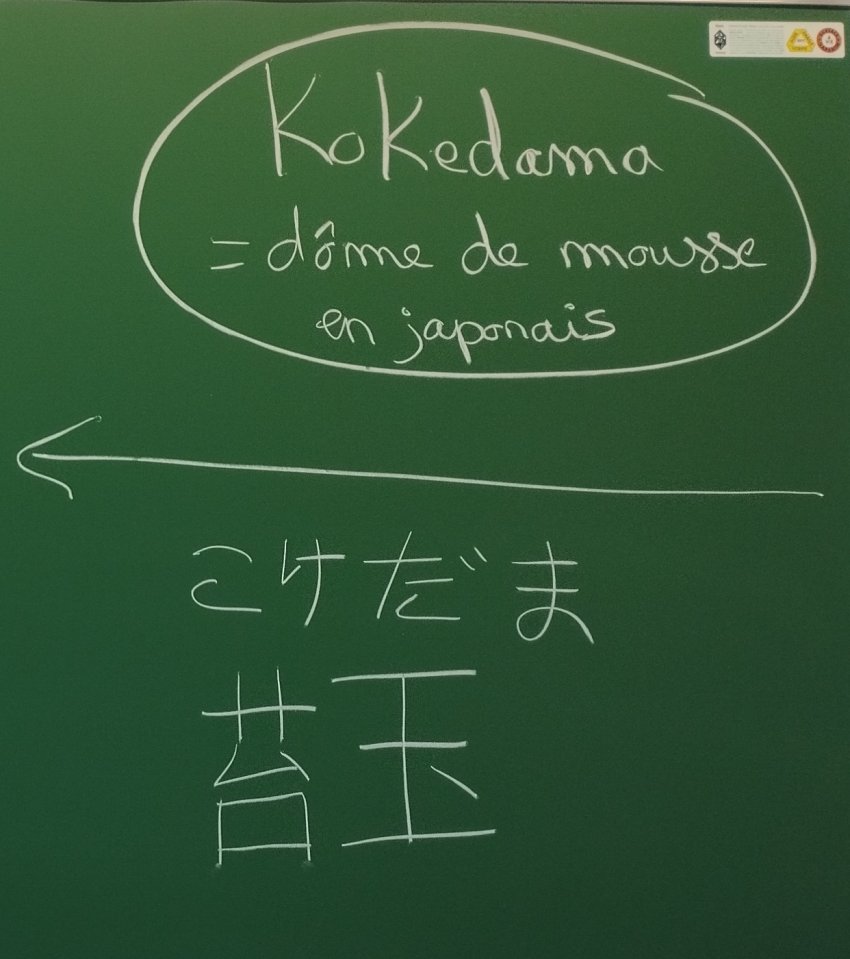 Kokedama
= dôme de mousse
en japonais
こけだま
苔玉